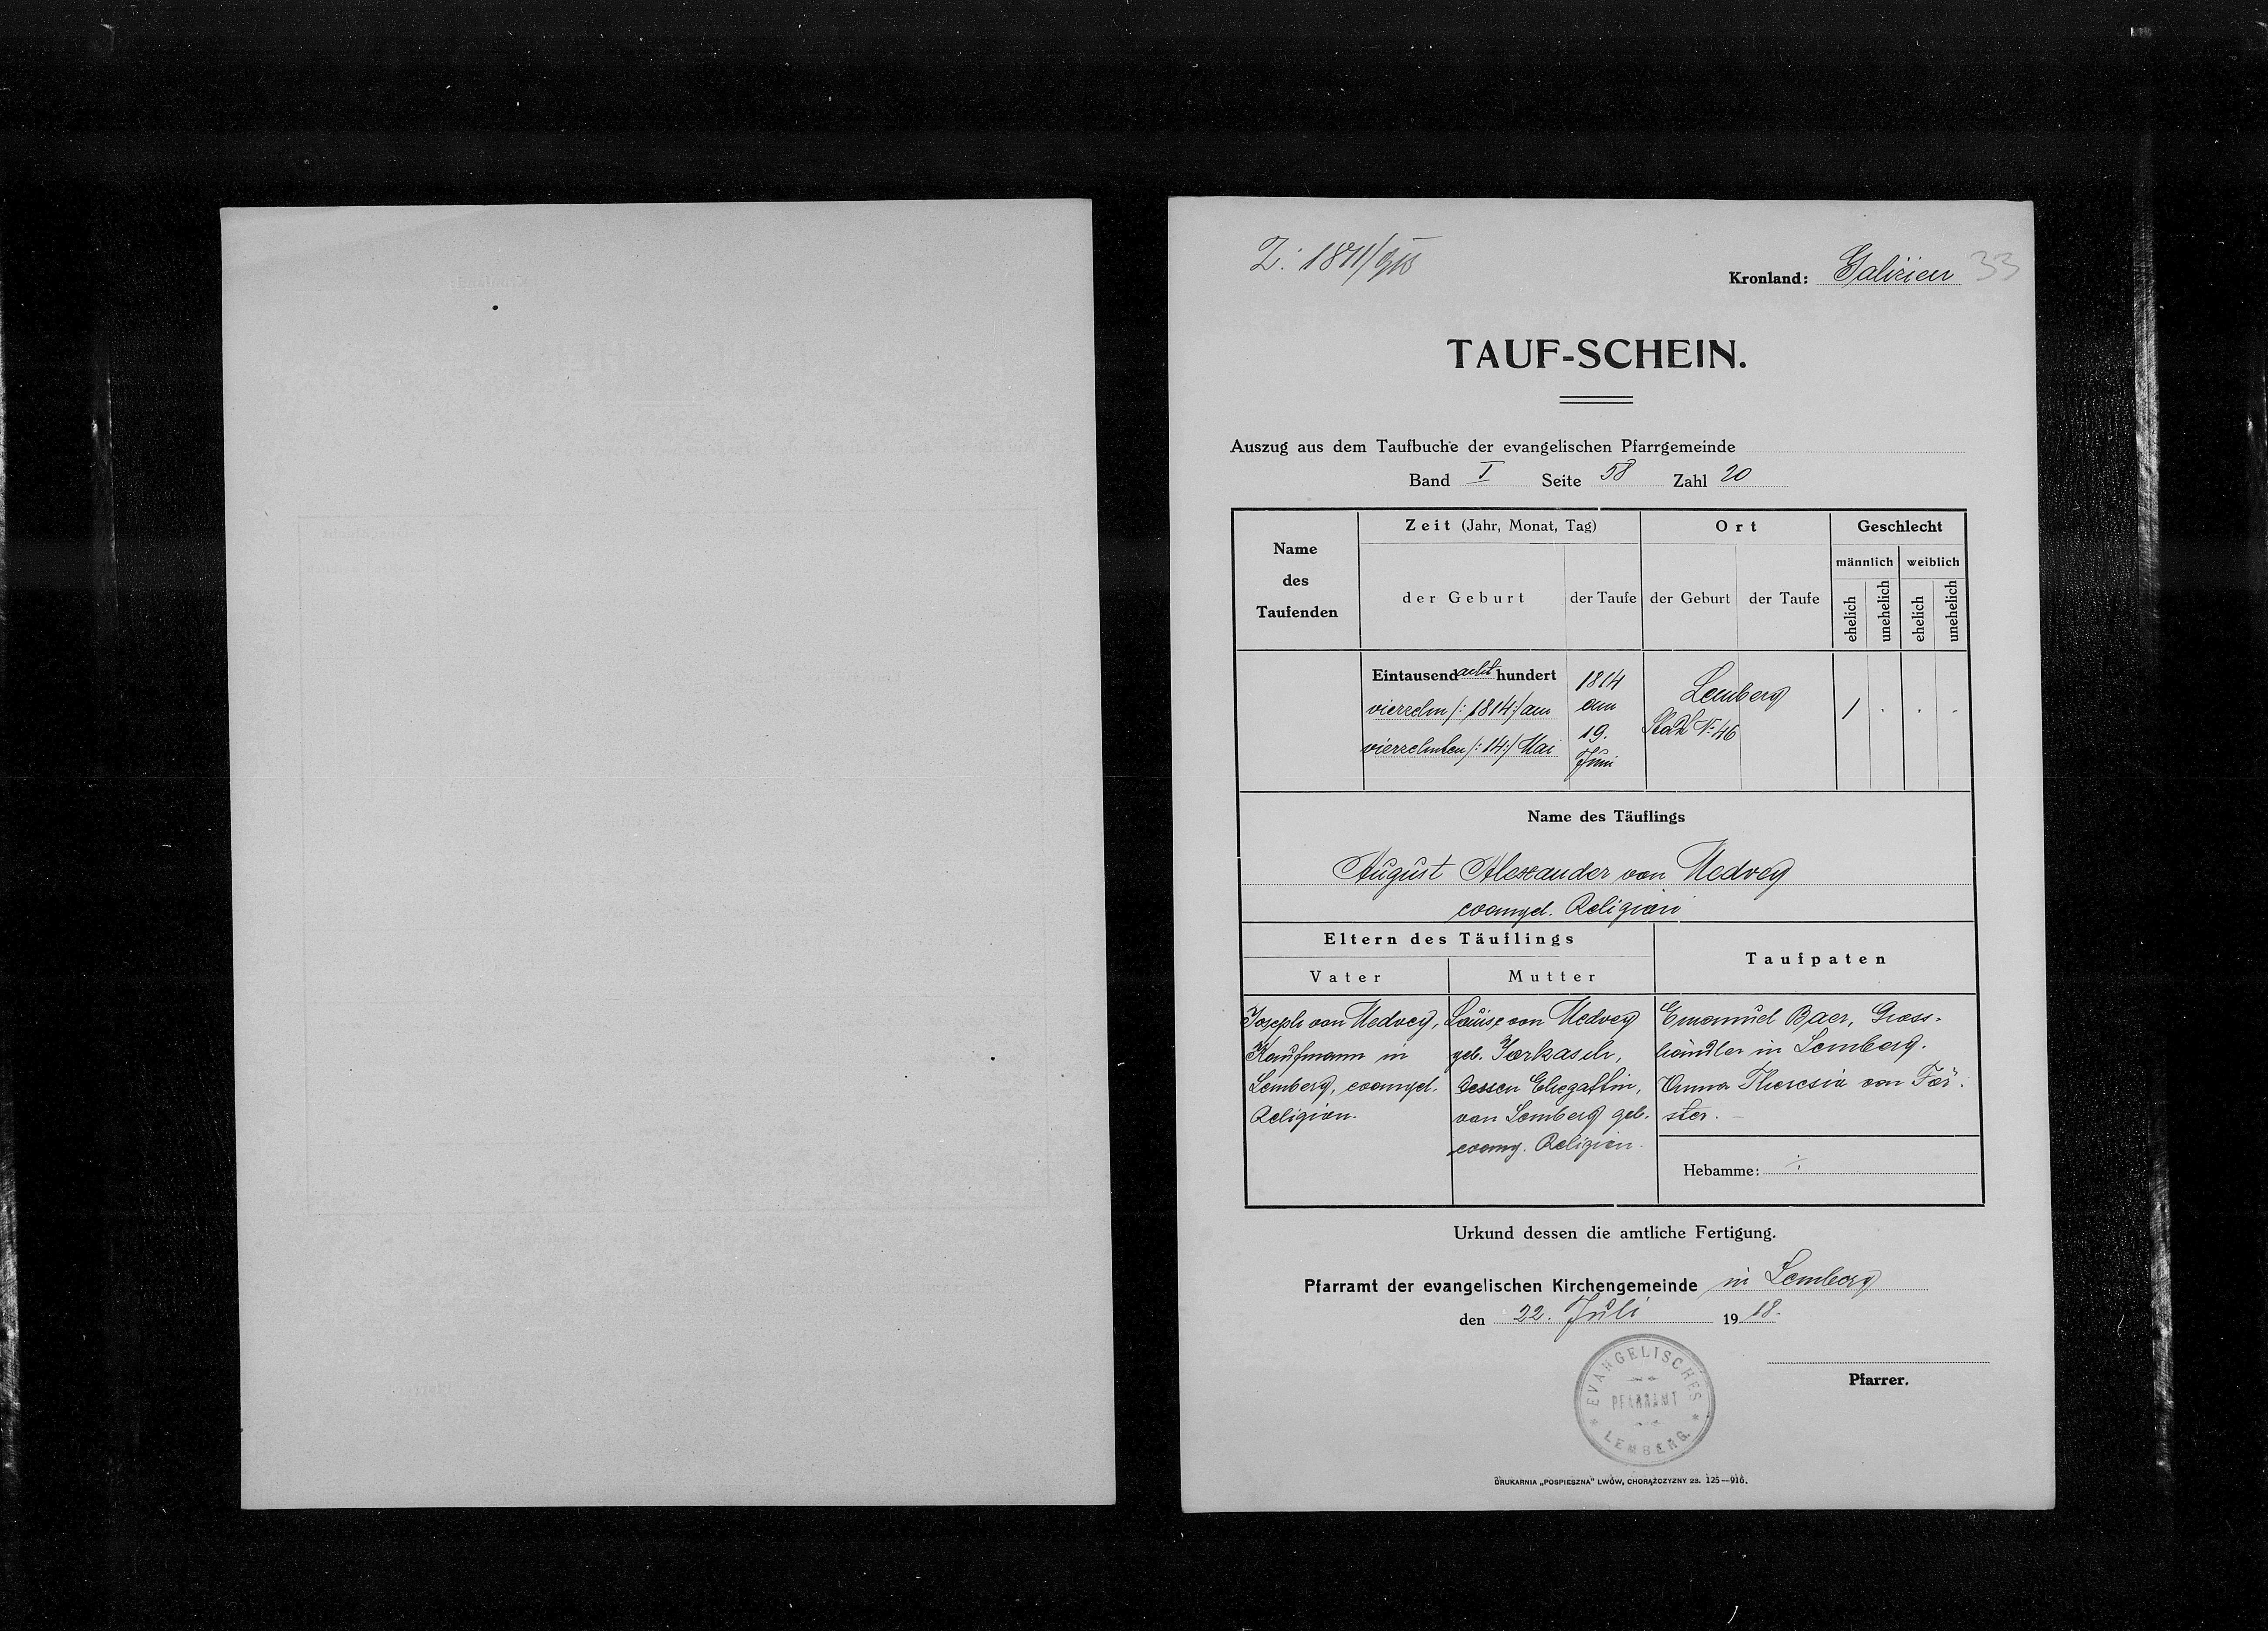 Z. 1811/918
Kronland: Galizien 33
TAUF-SCHEIN.
Auszug aus dem Taufbuche der evangelischen Pfarrgemeinde
Band I Seite 58 Zahl 20
Name des Taufenden
Zeit (Jahr, Monat, Tag)
Ort
Geschlecht
der Geburt
der Taufe
der Geburt
der Taufe
männlich
weiblich
ehelich
unehelich
ehelich
unehelich
Eintausend acht hundert
vierzehn /: 1814 :/ am
vierzehnten /: 14 :/ Mai
1814
am
19.
Juni
Lemberg
Stadt No 46
1 . . .
Name des Täuflings
August Alexander von Medvey
evangel. Religion
Eltern des Täuflings
Taufpaten
Vater
Mutter
Joseph von Medvey,
Kaufmann in
Lemberg, evangel.
Religion.
Louise von Medvey
geb. Jorkasch,
dessen Ehegattin,
von Lemberg geb.
evang. Religion.
Emanuel Baer, Gross-
händler in Lemberg.
Anna Theresia von För-
ster. —
Hebamme: ./.
Urkund dessen die amtliche Fertigung.
Pfarramt der evangelischen Kirchengemeinde in Lemberg
den 22. Juli 1918.
EVANGELISCHES
PFARRAMT
LEMBERG.
Pfarrer.
DRUKARNIA „POSPIESZNA" LWÓW, CHORĄŻCZYZNY 23. 125—916.